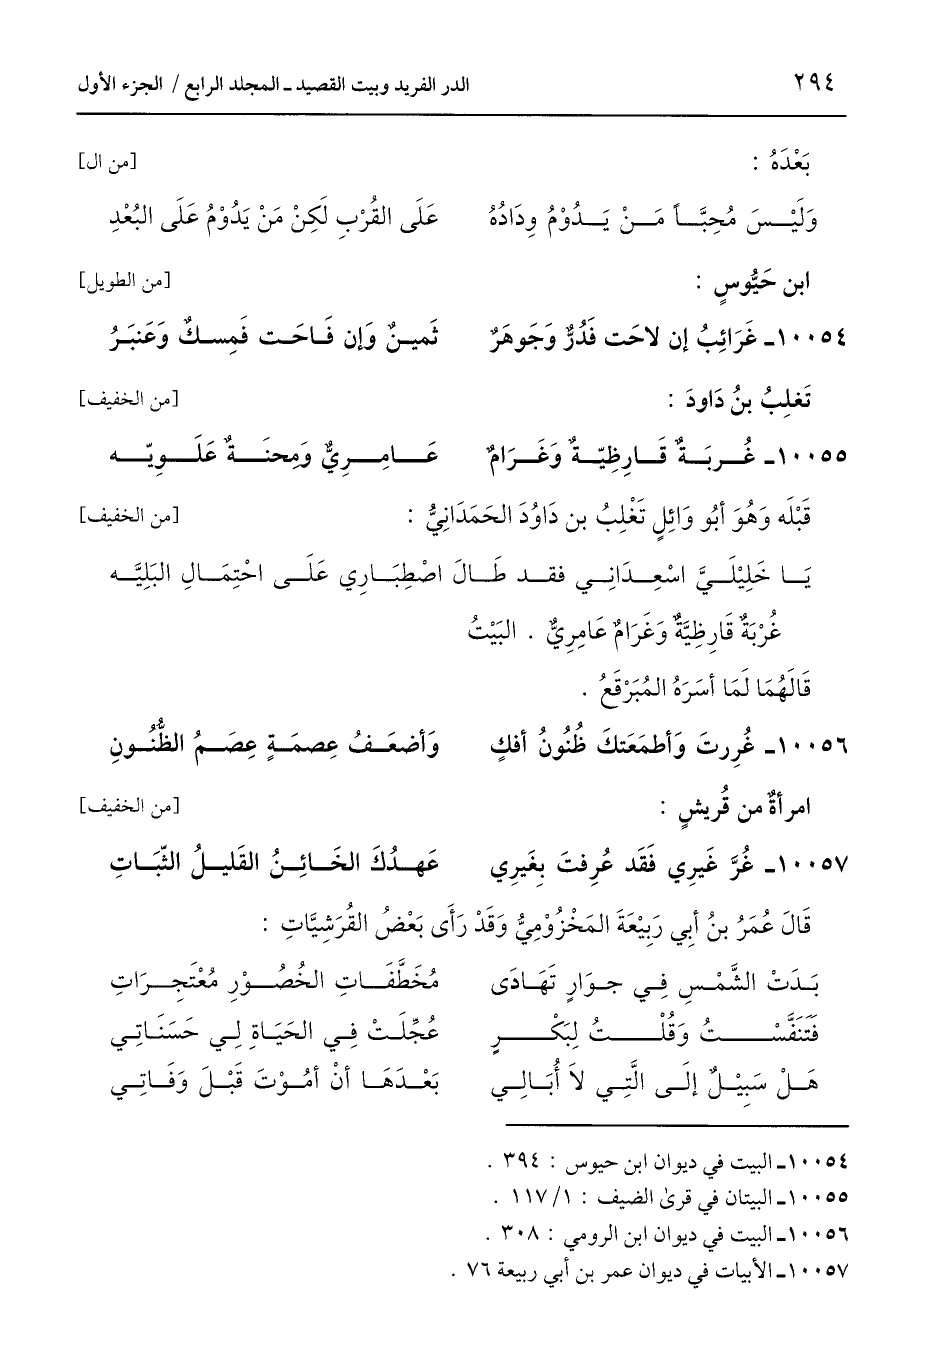 ٢٩٤ الدر الفريد وبيت القصيد ـ المجلد الرابع / الجزء الأول
بَعْدَهُ : [من ال]
وَلَيْسَ مُحِبَّاً مَنْ يَدُوْمُ وِدَادُهُ عَلَى القُرْبِ لَكِنْ مَنْ يَدُوْمُ عَلَى البُعْدِ
ابن حَيُّوسٍ : [من الطويل]
١٠٠٥٤ـ غَرَائِبُ إن لاحَت فَدُرٌّ وَجَوهَرٌ ثَمينٌ وَإن فَاحَت فَمِسكٌ وَعَنبَرُ
تَغلِبُ بنُ دَاودَ : [من الخفيف]
١٠٠٥٥ـ غُربَةٌ قَارِظِيّةٌ وَغَرَامٌ عَامِرِيٌّ وَمِحنَةٌ عَلَويّه
قَبْلَه وَهُوَ أبُو وَائِلٍ تَغْلِبُ بن دَاوُدَ الحَمَدَانِيُّ : [من الخفيف]
يَا خَلِيْلَيَّ اسْعِدَانِي فقد طَالَ اصْطِبَارِي عَلَى احْتِمَالِ البَلِيَّه
غُرْبَةٌ قَارِظِيَّةٌ وَغَرَامٌ عَامِرِيٌّ . البَيْتُ
قَالَهُمَا لَمَا أسَرَهُ المُبَرْقَعُ .
١٠٠٥٦ـ غُرِرتَ وَأطمَعَتكَ ظُنُونُ أفكٍ وَأضعَفُ عِصمَةٍ عِصَمُ الظُّنُونِ
امرأةٌ من قُريشٍ : [من الخفيف]
١٠٠٥٧ـ غُرَّ غَيرِي فَقَد عُرِفتَ بِغَيرِي عَهدُكَ الخَائِنُ القَليلُ الثّبَاتِ
قَالَ عُمَرُ بنُ أبِي رَبِيْعَةَ المَخْزُوْمِيُّ وَقَدْ رَأَى بَعْضُ القُرَشِيَّاتِ :
بَدَتْ الشَّمْسِ فِي جوَارٍ تَهَادَى مُخَطَّفَاتِ الخُصُوْرِ مُعْتَجِرَاتِ
فَتَنَفَّسْتُ وَقُلْتُ لِبَكْرٍ عُجِّلَتْ فِي الحَيَاةِ لِي حَسَنَاتِي
هَلْ سَبِيْلٌ إلَى الَّتِي لاَ أُبَالِي بَعْدَهَا أنْ أمُوْتَ قَبْلَ وَفَاتِي
١٠٠٥٤ـ البيت في ديوان ابن حيوس : ٣٩٤ .
١٠٠٥٥ـ البيتان في قرى الضيف : ١/ ١١٧ .
١٠٠٥٦ـ البيت في ديوان ابن الرومي : ٣٠٨ .
١٠٠٥٧ـ الأبيات في ديوان عمر بن أبي ربيعة ٧٦ .